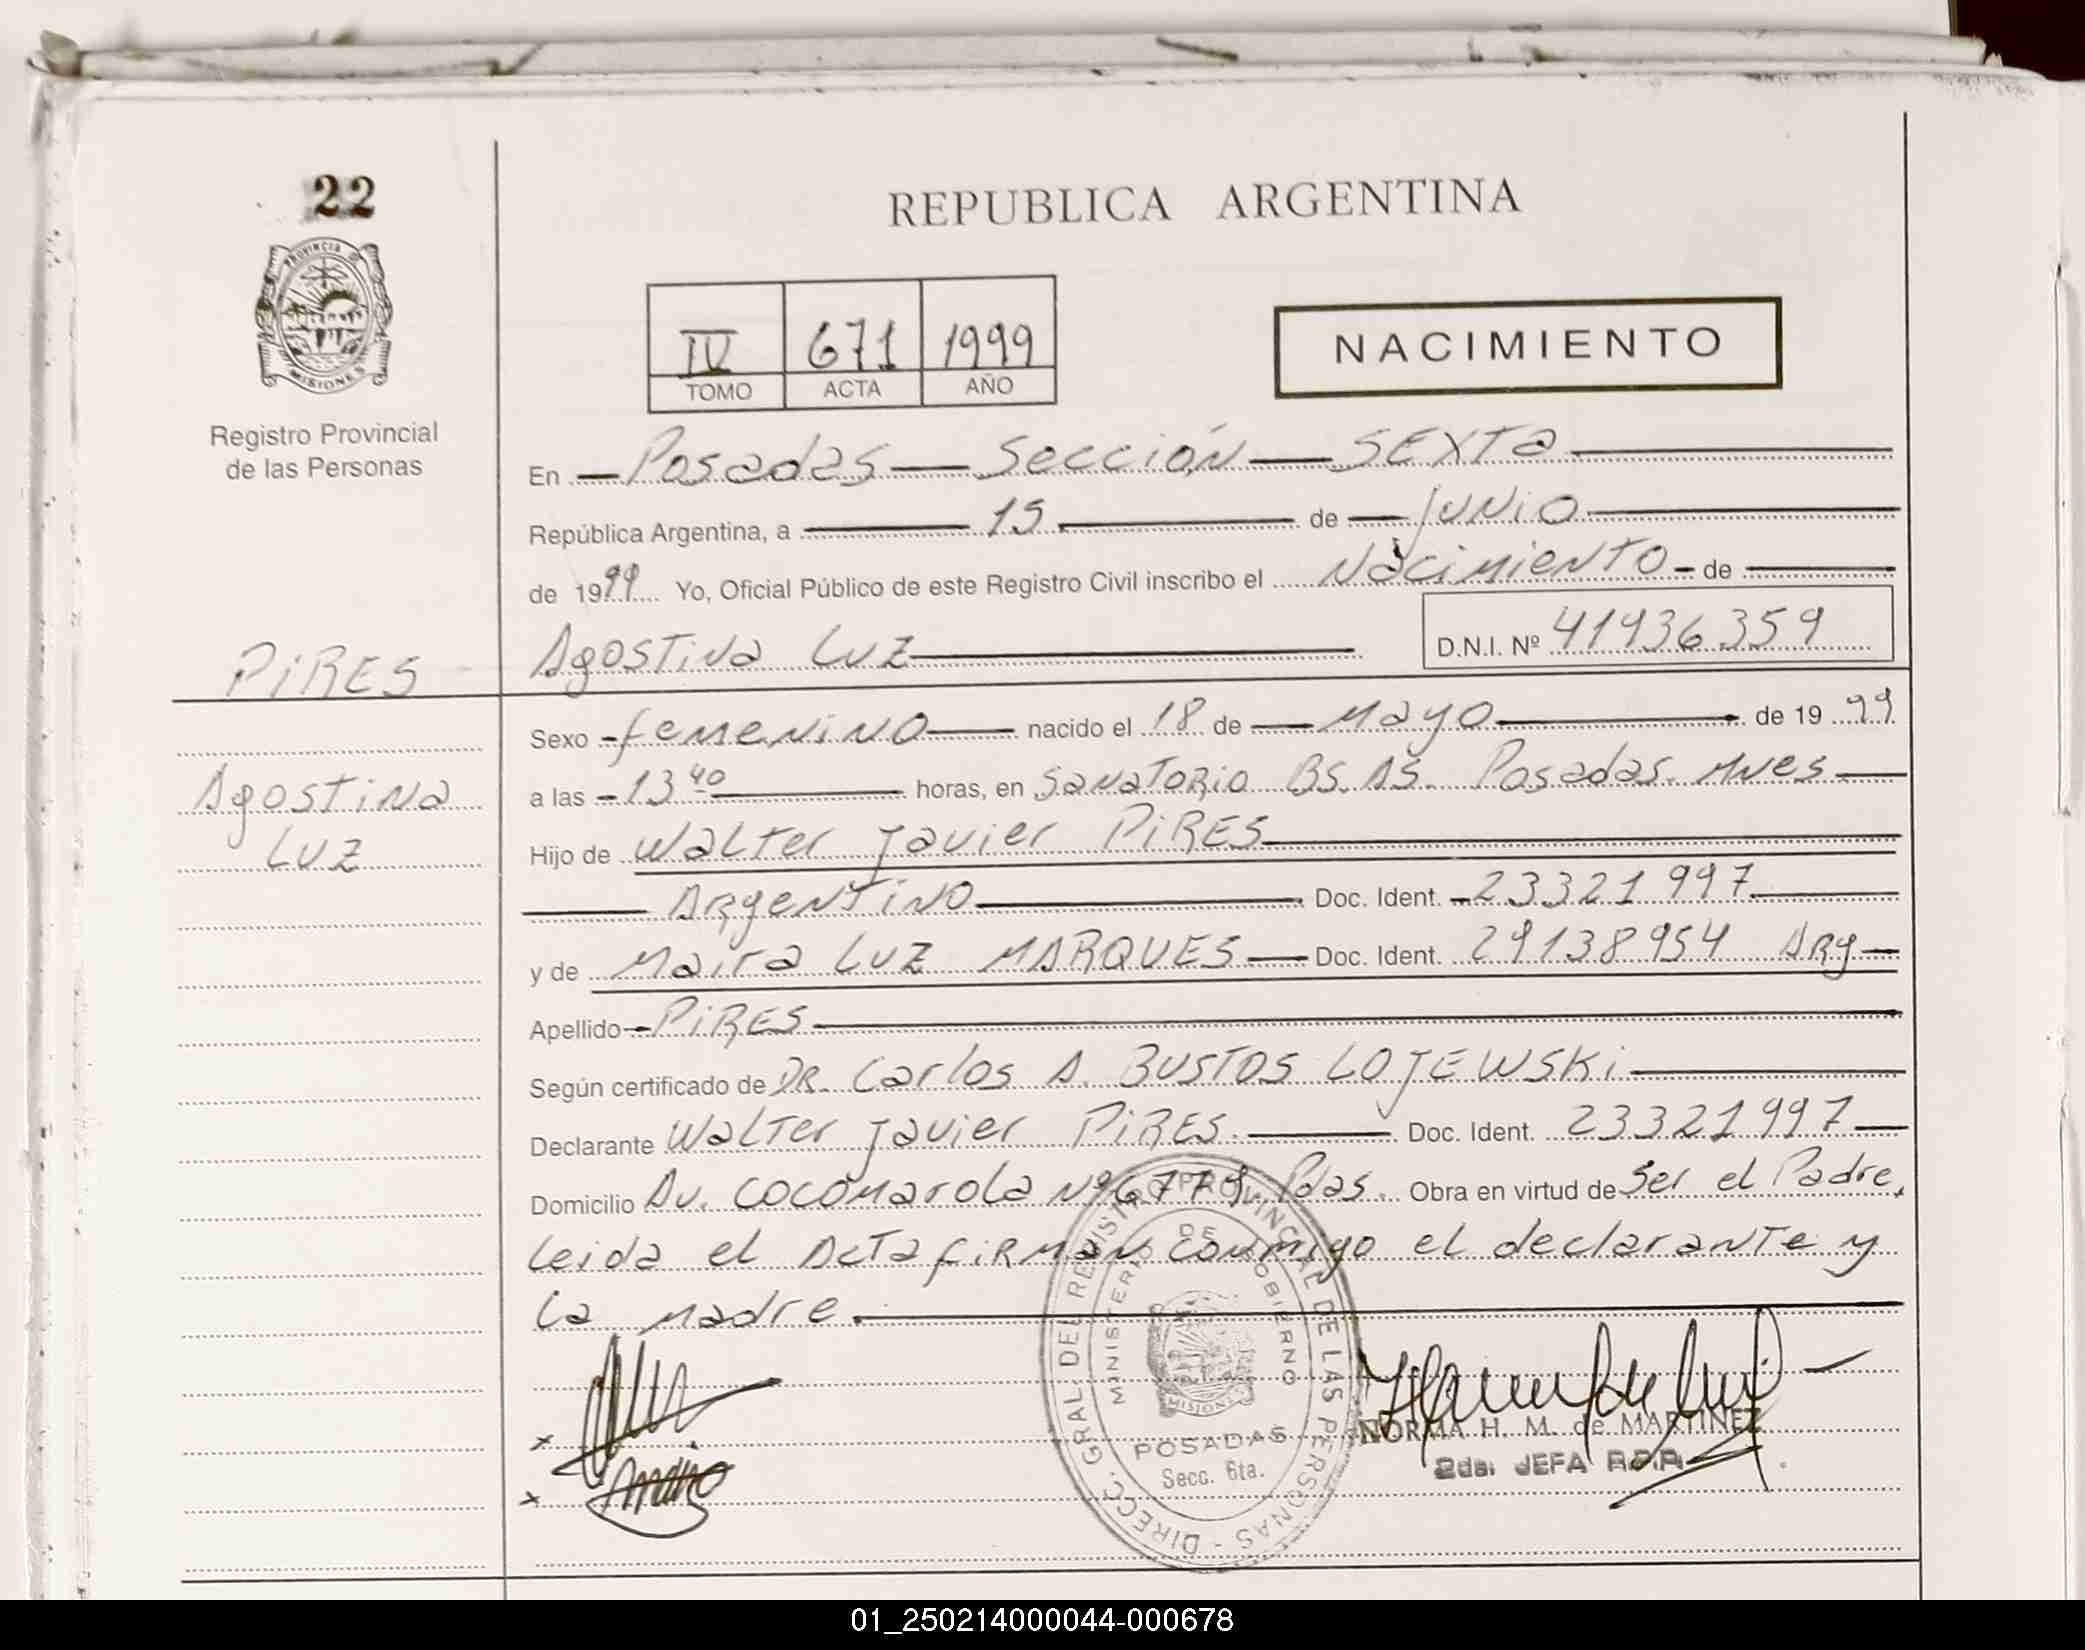 22
REPUBLICA ARGENTINA
PROVINCIA DE
MISIONES
IV 671 1999
TOMO ACTA AÑO
NACIMIENTO
Registro Provincial
de las Personas
En Posadas Sección SEXTA
República Argentina, a 15 de junio
de 1999 Yo, Oficial Público de este Registro Civil inscribo el Nacimiento de
Agostina Luz D.N.I. Nº 41936359
PIRES
Agostina
Luz
Sexo femenino nacido el 18 de Mayo de 1999
a las 13 40 horas, en Sanatorio BS. AS. Posadas. Mnes
Hijo de Walter Javier PIRES
Argentino Doc. Ident. 23321997
y de Maira Luz MARQUES Doc. Ident. 29138954 Arg
Apellido PIRES
Según certificado de DR. Carlos A. BUSTOS LOJEWSKI
Declarante Walter Javier PIRES. Doc. Ident. 23321997
Domicilio Av. Cocomarola Nº 6779. Pdas. Obra en virtud de ser el Padre,
leida el Acta firman conmigo el declarante y
la madre.
DIRECC. GRAL. DEL REGISTRO PROVINCIAL DE LAS PERSONAS -
MINISTERIO DE GOBIERNO
MISIONES
POSADAS
Secc. 6ta.
x
x
NORMA H. M. de MARTINEZ
2da. JEFA R.P.P.
01_250214000044-000678